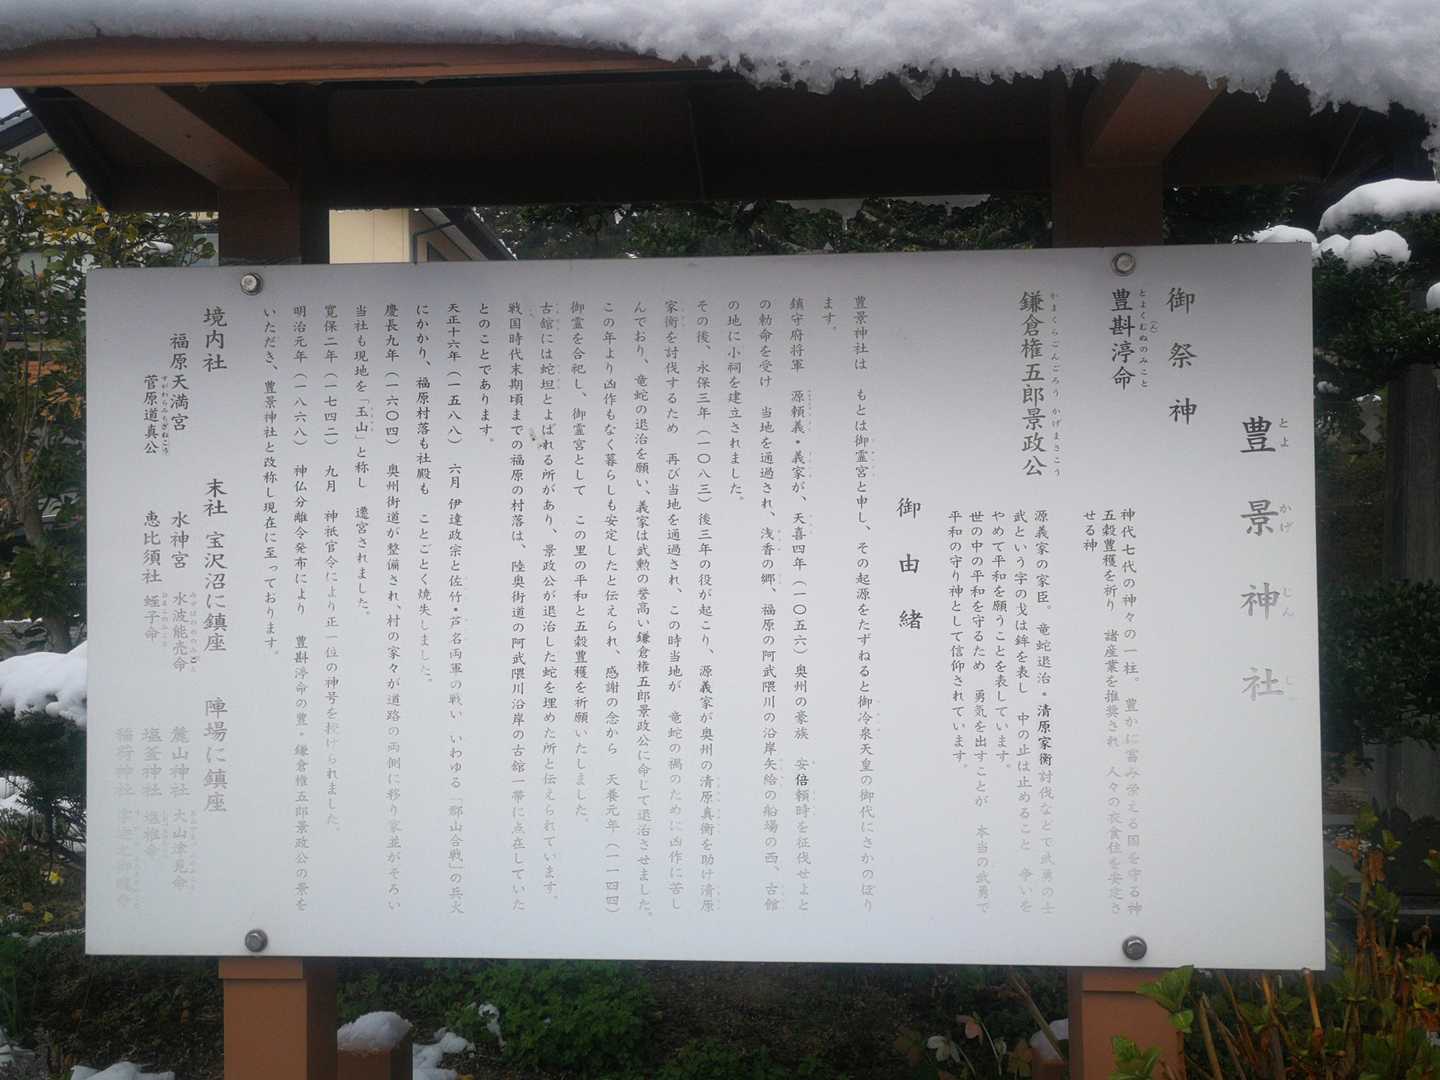 豊景神社
とよ かげ じん じゃ
御祭神
豊斟渟命
とよくむ(ん)ぬのみこと
神代七代の神々の一柱。豊かに富み栄える国を守る神
五穀豊穫を祈り 諸産業を推奨され 人々の衣食住を安定さ
せる神
鎌倉権五郎景政公
かまくらごんごろう かげまさこう
源義家の家臣。竜蛇退治・清原家衡討伐などで武勇の士
武という字の戈は鉾を表し 中の止は止めること 争いを
やめて平和を願うことを表しています。
世の中の平和を守るため 勇気を出すことが 本当の武勇で
平和の守り神として信仰されています。
御由緒
豊景神社は もとは御霊宮と申し、その起源をたずねると御冷泉天皇の御代にさかのぼり
ます。
鎮守府将軍 源頼義・義家が、天喜四年(一〇五六)奥州の豪族 安倍頼時を征伐せよと
の勅命を受け 当地を通過され、浅香の郷、福原の阿武隈川の沿岸矢給の船場の西、古館
の地に小祠を建立されました。
その後、永保三年(一〇八三)後三年の役が起こり、源義家が奥州の清原真衡を助け清原
家衡を討伐するため 再び当地を通過され、この時当地が 竜蛇の禍のために凶作に苦し
んでおり、竜蛇の退治を願い、義家は武勲の誉高い鎌倉権五郎景政公に命して退治させました。
この年より凶作もなく暮らしも安定したと伝えられ、感謝の念から 天養元年(一一四四)
御霊を合祀し、御霊宮として この里の平和と五穀豊穫を祈願いたしました。
古館には蛇坦とよばれる所があり、景政公が退治した蛇を埋めた所と伝えられています。
戦国時代末期頃までの福原の村落は、陸奥街道の阿武隈川沿岸の古館一帯に点在していた
とのことであります。
天正十六年(一五八八)六月 伊達政宗と佐竹・芦名両軍の戦い いわゆる「郡山合戦」の兵火
にかかり、福原村落も社殿も ことごとく焼失しました。
慶長九年(一六〇四)奥州街道が整備され、村の家々が道路の両側に移り家並がそろい
当社も現地を「玉山」と称し 遷宮されました。
寛保二年(一七四二)九月 神祇官令により正一位の神号を授けられました。
明治元年(一八六八)神仏分離令発布により 豊斟渟命の豊・鎌倉権五郎景政公の景を
いただき、豊景神社と改称し現在に至っております。
境内社 末社 宝沢沼に鎮座 陣場に鎮座
福原天満宮 水神宮 水波能売命 麓山神社 大山津見命
菅原道真公 恵比須社 蛭子命 塩釜神社 塩椎命
すがわらみちざねこう
稲荷神社